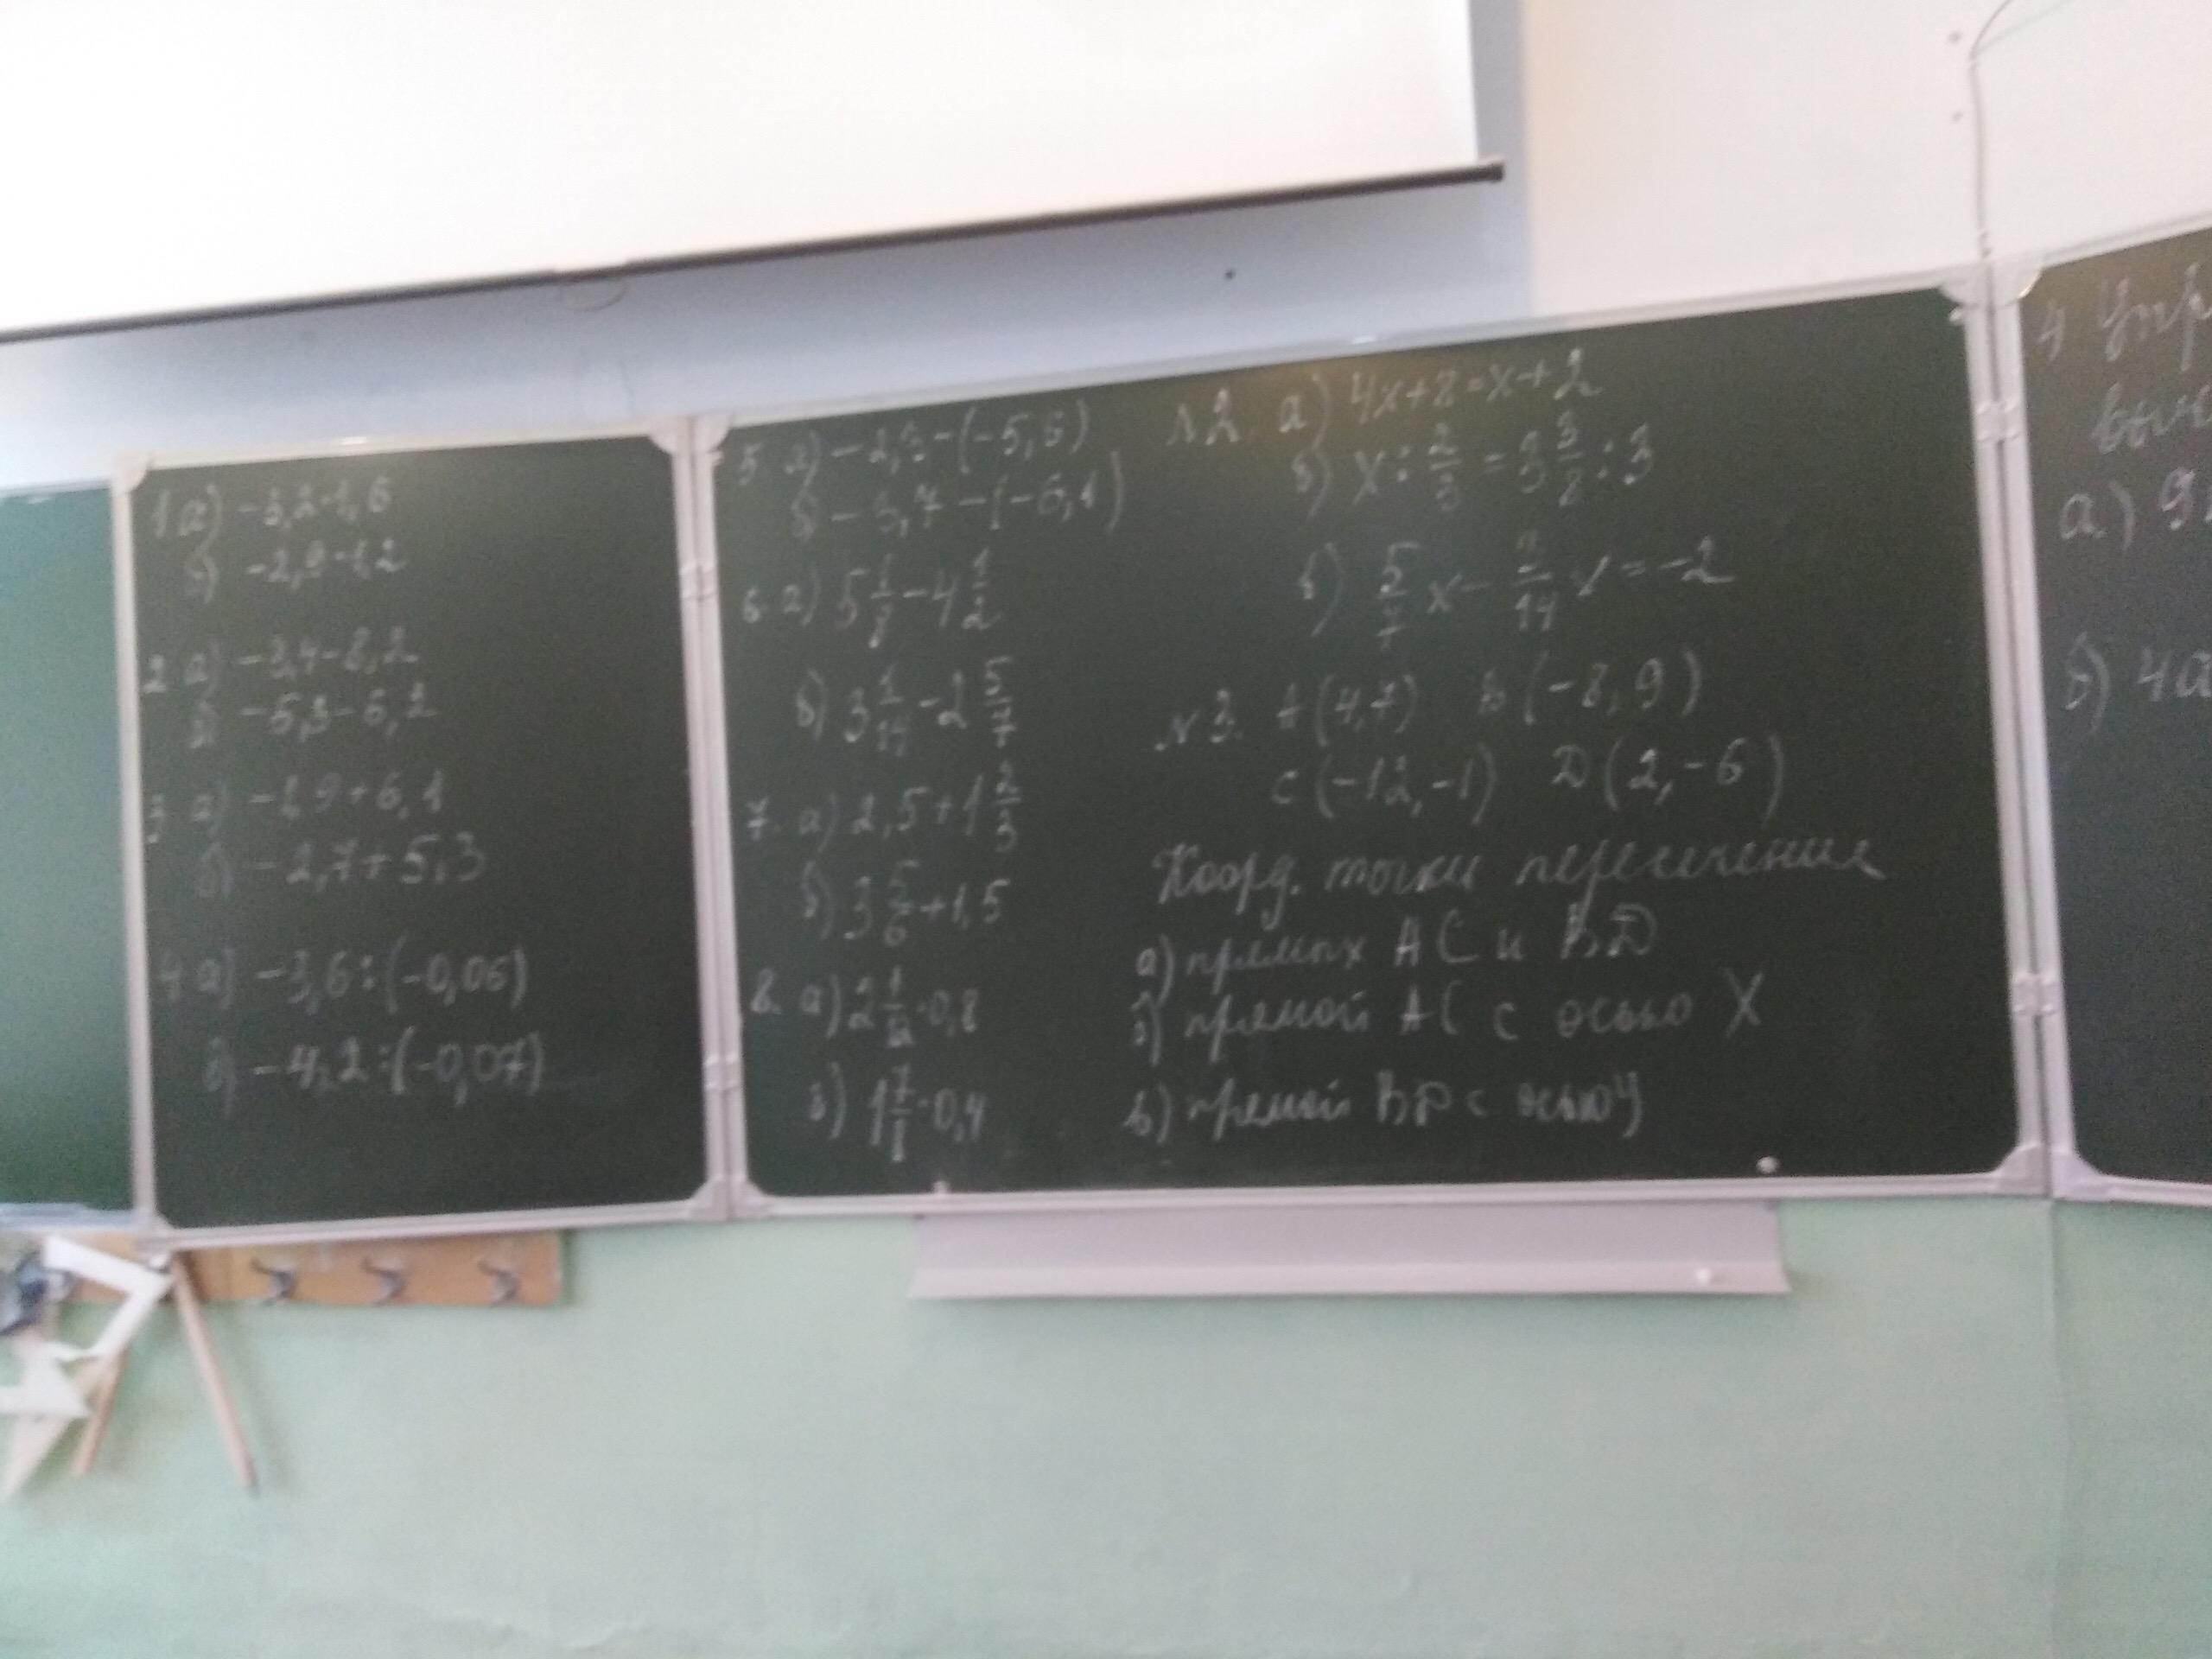 1 а) -3,2·1,6
б) -2,9·1,2
2 а) -3,4-8,2
б) -5,3-6,2
3 а) -1,9+6,1
б) -2,7+5,3
4 а) -3,6:(-0,06)
б) -4,2:(-0,07)
5 а) -2,3-(-5,6)
б) -3,7-(-6,1)
6. а) 5 1/8 - 4 1/2
б) 3 1/14 - 2 5/7
7. а) 2,5+1 2/3
б) 3 5/6 +1,5
8. а) 2 1/2 ·0,8
б) 1 7/8 ·0,4
№2. а) 4x+8=x+2
б) x : 2/3 = 3 3/8 : 3
в) 5/7 x - /14 x = -2
№3. А(4,7) В(-8,9)
С(-12,-1) D(2,-6)
Коорд. точки пересечения
а) прямых АС и ВD
б) прямой АС с осью X
в) прямой ВD с осью У
4 Упр
а) 9
б) 4а